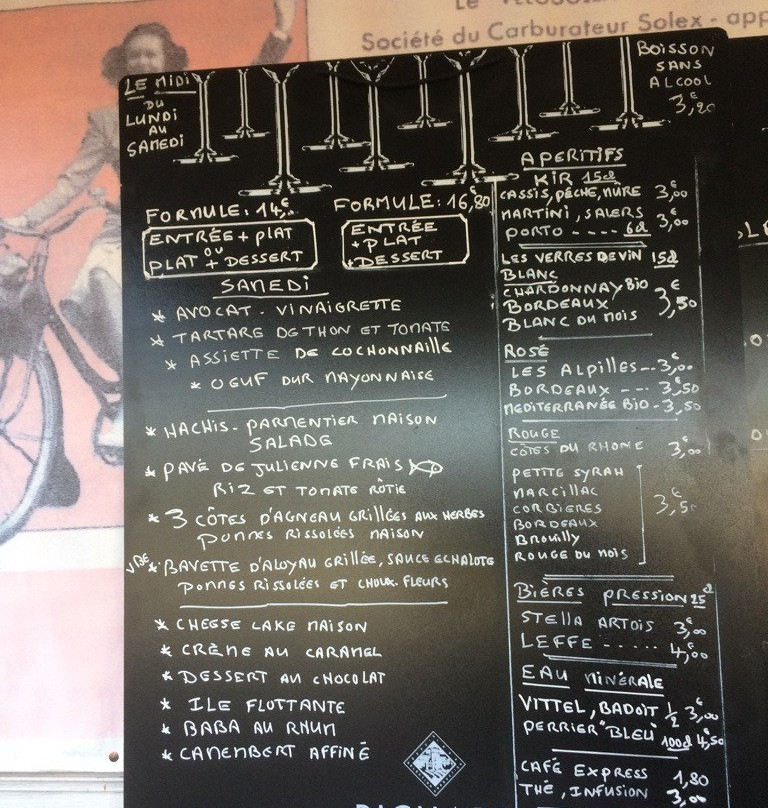 Société du Carburateur Solex - app
LE MIDI
DU
LUNDI
AU
SAMEDI
BOISSON
SANS
ALCOOL
3,€20
FORMULE: 14,€
ENTRÉE + PLAT
OU
PLAT + DESSERT
FORMULE: 16,€80
ENTRÉE
+ PLAT
+ DESSERT
SAMEDI
* AVOCAT - VINAIGRETTE
* TARTARE DE THON ET TOMATE
* ASSIETTE DE COCHONNAILLE
* OEUF DUR MAYONNAISE
* HACHIS - PARMENTIER MAISON
SALADE
* PAVÉ DE JULIENNE FRAIS
RIZ ET TOMATE RÔTIE
* 3 CÔTES D'AGNEAU GRILLÉES AUX HERBES
POMMES RISSOLÉES MAISON
VBF * BAVETTE D'ALOYAU GRILLÉE, SAUCE ECHALOTE
POMMES RISSOLÉES ET CHOUX-FLEURS
* CHEESE CAKE MAISON
* CRÈME AU CARAMEL
* DESSERT AU CHOCOLAT
* ILE FLOTTANTE
* BABA AU RHUM
* CAMEMBERT AFFINÉ
APERITIFS
KIR 15cl
CASSIS, PÉCHE, MURE 3,€00
MARTINI, SALERS
PORTO ---- 6cl 3,€00
LES VERRES DE VIN 15cl
BLANC
CHARDONNAY BIO
BORDEAUX 3,€50
BLANC DU MOIS
ROSÉ
LES ALPILLES -- 3,€00
BORDEAUX --- 3,€50
MEDITERRANÉE BIO - 3,50
ROUGE
CÔTES DU RHONE 3,€00
PETITE SYRAH
MARCILLAC
CORBIERES 3,€50
BORDEAUX
BROUILLY
ROUGE DU MOIS
BIÈRES PRESSION 25cl
STELLA ARTOIS 3,€00
LEFFE ----- 4,€00
EAU MINÉRALE
VITTEL, BADOIT 1/2 3,€00
PERRIER "BLEU" 100cl 4,€50
CAFÉ EXPRESS 1,80
THÉ, INFUSION 3,€00